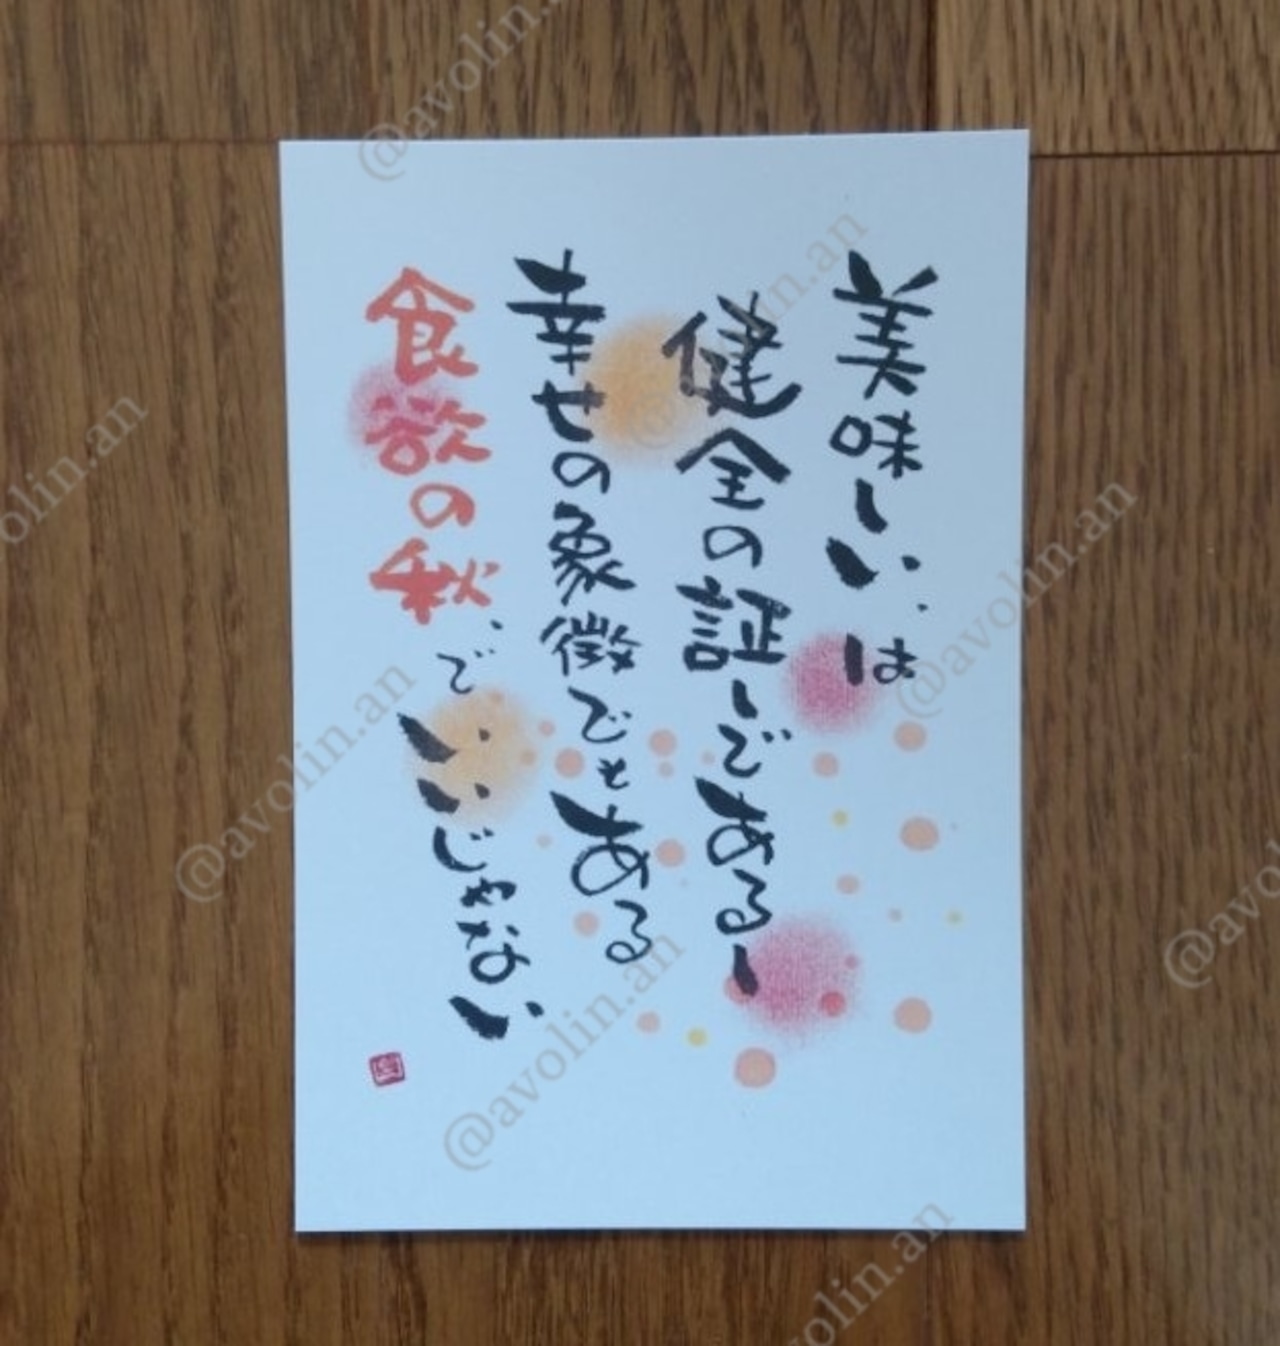 美味しい、は
健全の証しであるし
幸せの象徴でもある
食欲の秋、でいいじゃない
@avolin.an
@avolin.an
@avolin.an
@avolin.an
@avolin.an
@avolin.an